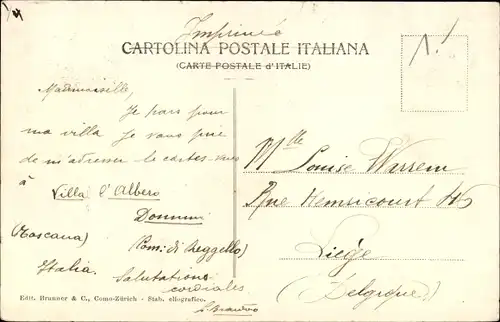 Imprimé
CARTOLINA POSTALE ITALIANA
(CARTE POSTALE d'ITALIE)
Mademoiselle,
Je pars pour
ma villa Je vous prie
de m'adresser le cartes-vues
à
Villa l'Albero
Donnini
(Toscana) (Com: di Reggello)
Italia. Salutations
cordiales
Mlle Louise Warrem
Rue Hemricourt
Liège
(Belgique)
Edit. Brunner & C., Como-Zürich - Stab. eliografico.